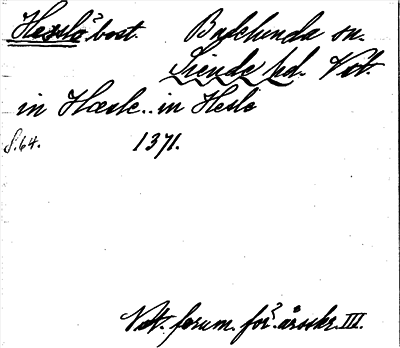 Hesslö bost. Badelunda sn.
Siende hd. Vstl.
in Hæsle.. in Hesle
S.64. 1371.
Vstl. fornm. för. årsskr. III.